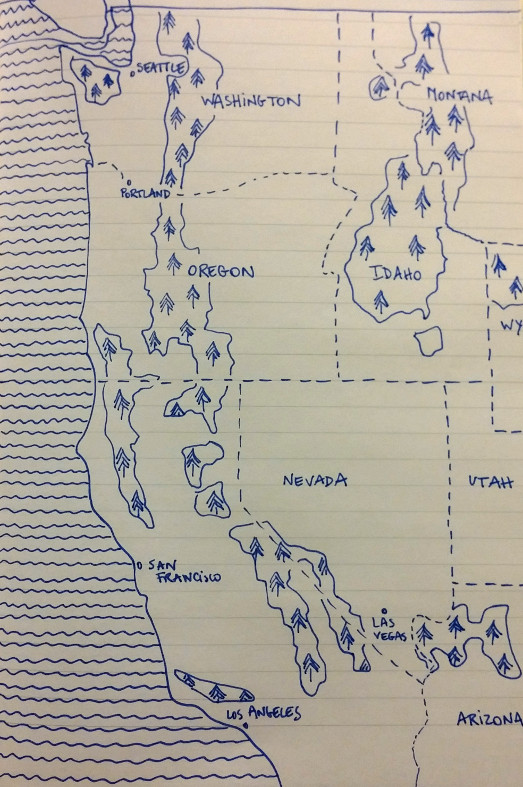 SEATTLE
WASHINGTON
MONTANA
PORTLAND
OREGON
IDAHO
WY
NEVADA
UTAH
SAN
FRANCISCO
LAS
VEGAS
LOS ANGELES
ARIZONA